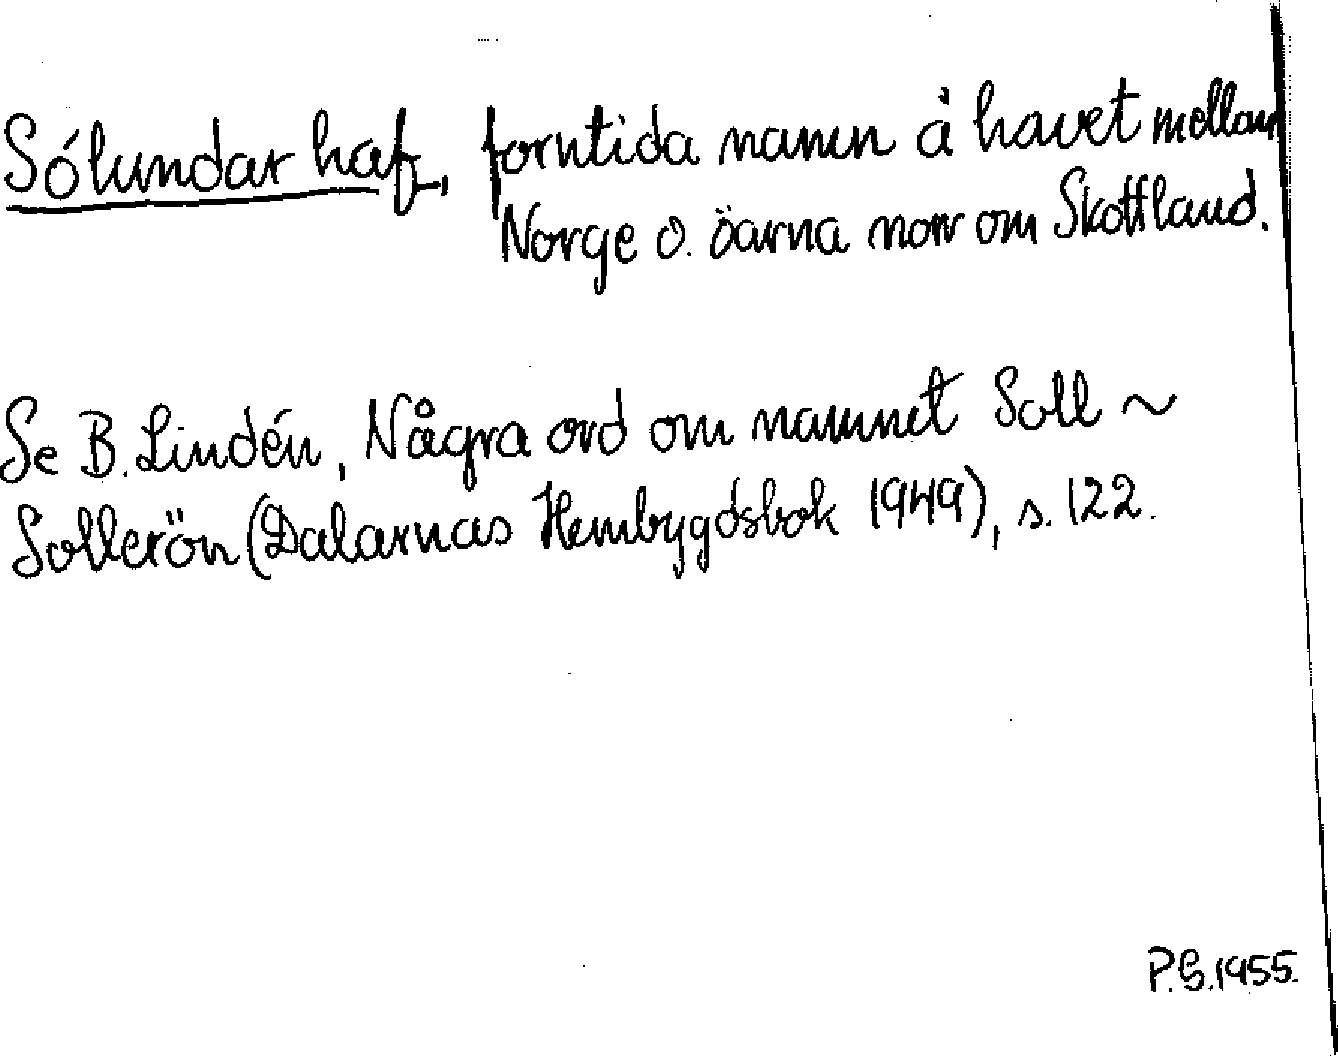 Sólundar haf, forntida namn å havet mellan
Norge o. öarna norr om Skottland.
Se B. Lindén, Några ord om namnet Soll ~
Sollerön (Dalarnas Hembygdsbok 1949), s. 122.
P.G. 1955.